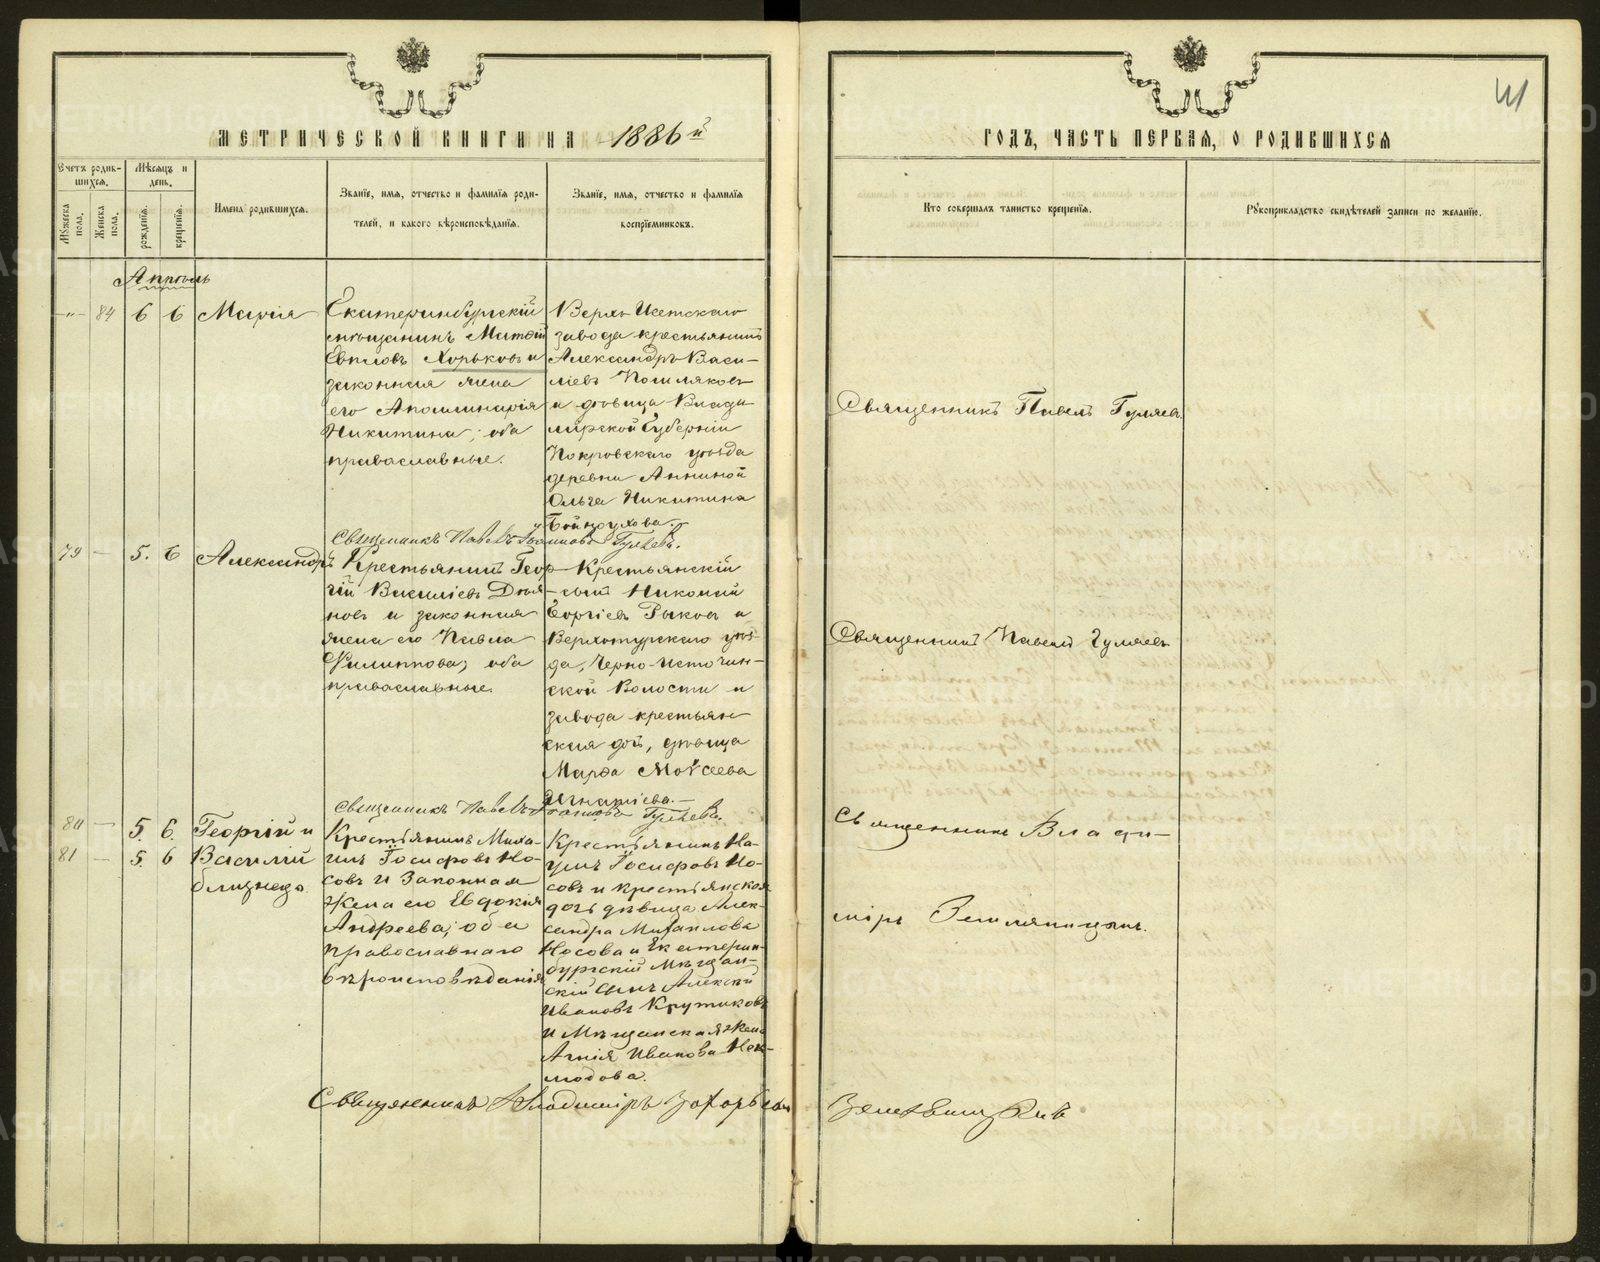 МЕТРИЧЕСКОЙ КНИГИ НА 1886й
ГОДЪ, ЧАСТЬ ПЕРВАЯ, О РОДИВШИХСЯ
Счетъ родив-
шихся.
Мѣсяцъ и
день.
Мужеска
пола.
Женска
пола.
рожденія.
крещенія.
Имена родившихся.
Званіе, имя, отчество и фамилія роди-
телей, и какого вѣроисповѣданія.
Званіе, имя, отчество и фамилія
воспріемниковъ.
Кто совершалъ таинство крещенія.
Рукоприкладство свидѣтелей записи по желанію.
Апрѣль
84 6 6 Марія
Екатеринбургскій
мѣщанинъ Матѳій
Хорьковъ и
законная жена
его Аполлинарія
Никитина; оба
православные.
Верхъ-Исетскаго
завода крестьянинъ
Александръ Васи-
ліевъ
и дѣвица Влади-
мірской Губерніи
Покровскаго уѣзда
деревни Анниной
Ольга Никитина
Священникъ Павелъ Гуляевъ
Священникъ Павелъ Іоанновъ Гуляевъ.
79 — 5. 6 Александръ
Крестьянинъ Геор-
гій Василіевъ Демя-
новъ и законная
жена его Павла
Филиппова; оба
православные.
Крестьянскій
сынъ Николай
Георгіевъ Рыковъ и
Верхотурскаго уѣз-
да, Черно-Источин-
ской Волости и
завода крестьян-
ская дочь, дѣвица
Марѳа Моѵсеева
Игнатіева.—
Священникъ Павелъ Гуляевъ
Священникъ Павелъ Іоанновъ Гуляевъ.
80 — 5. 6. Георгій и
81 — 5. 6 Василій
близнецы
Крестьянинъ Миха-
илъ Іосифовъ Но-
совъ и Законная
Жена его Евдокія
Андреева; оба
православнаго
вѣроисповѣданія
Крестьянинъ На-
умъ Іосифовъ Но-
совъ и крестьянская
дочь дѣвица Алек-
сандра Михаилова
Носова и Екатерин-
бургскій Мѣщан-
скій сынъ Алексѣй
Ивановъ Крутиковъ
и Мѣщанская Жена
Агнія Иванова Нек-
людова.
Священникъ Влади-
міръ Земляницынъ.
Священникъ Владиміръ Захаровъ
Земляницынъ
METRIKI.GASO-URAL.RU